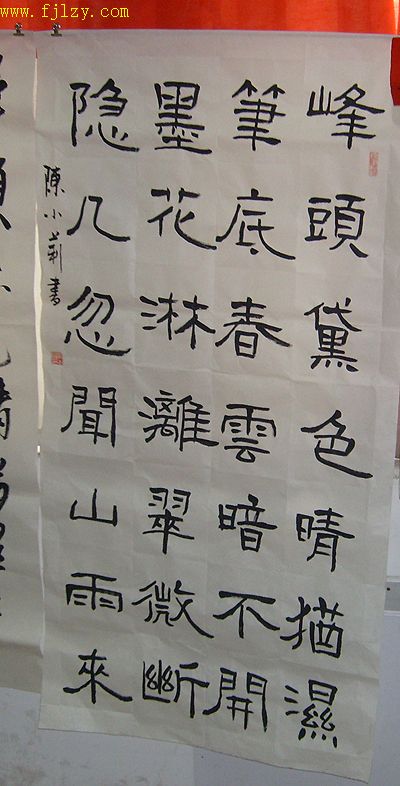 www.fjlzy.com
峰頭黛色晴猶濕
筆底春雲暗不開
墨花淋漓翠微斷
隐几忽聞山雨來
陳小莉書